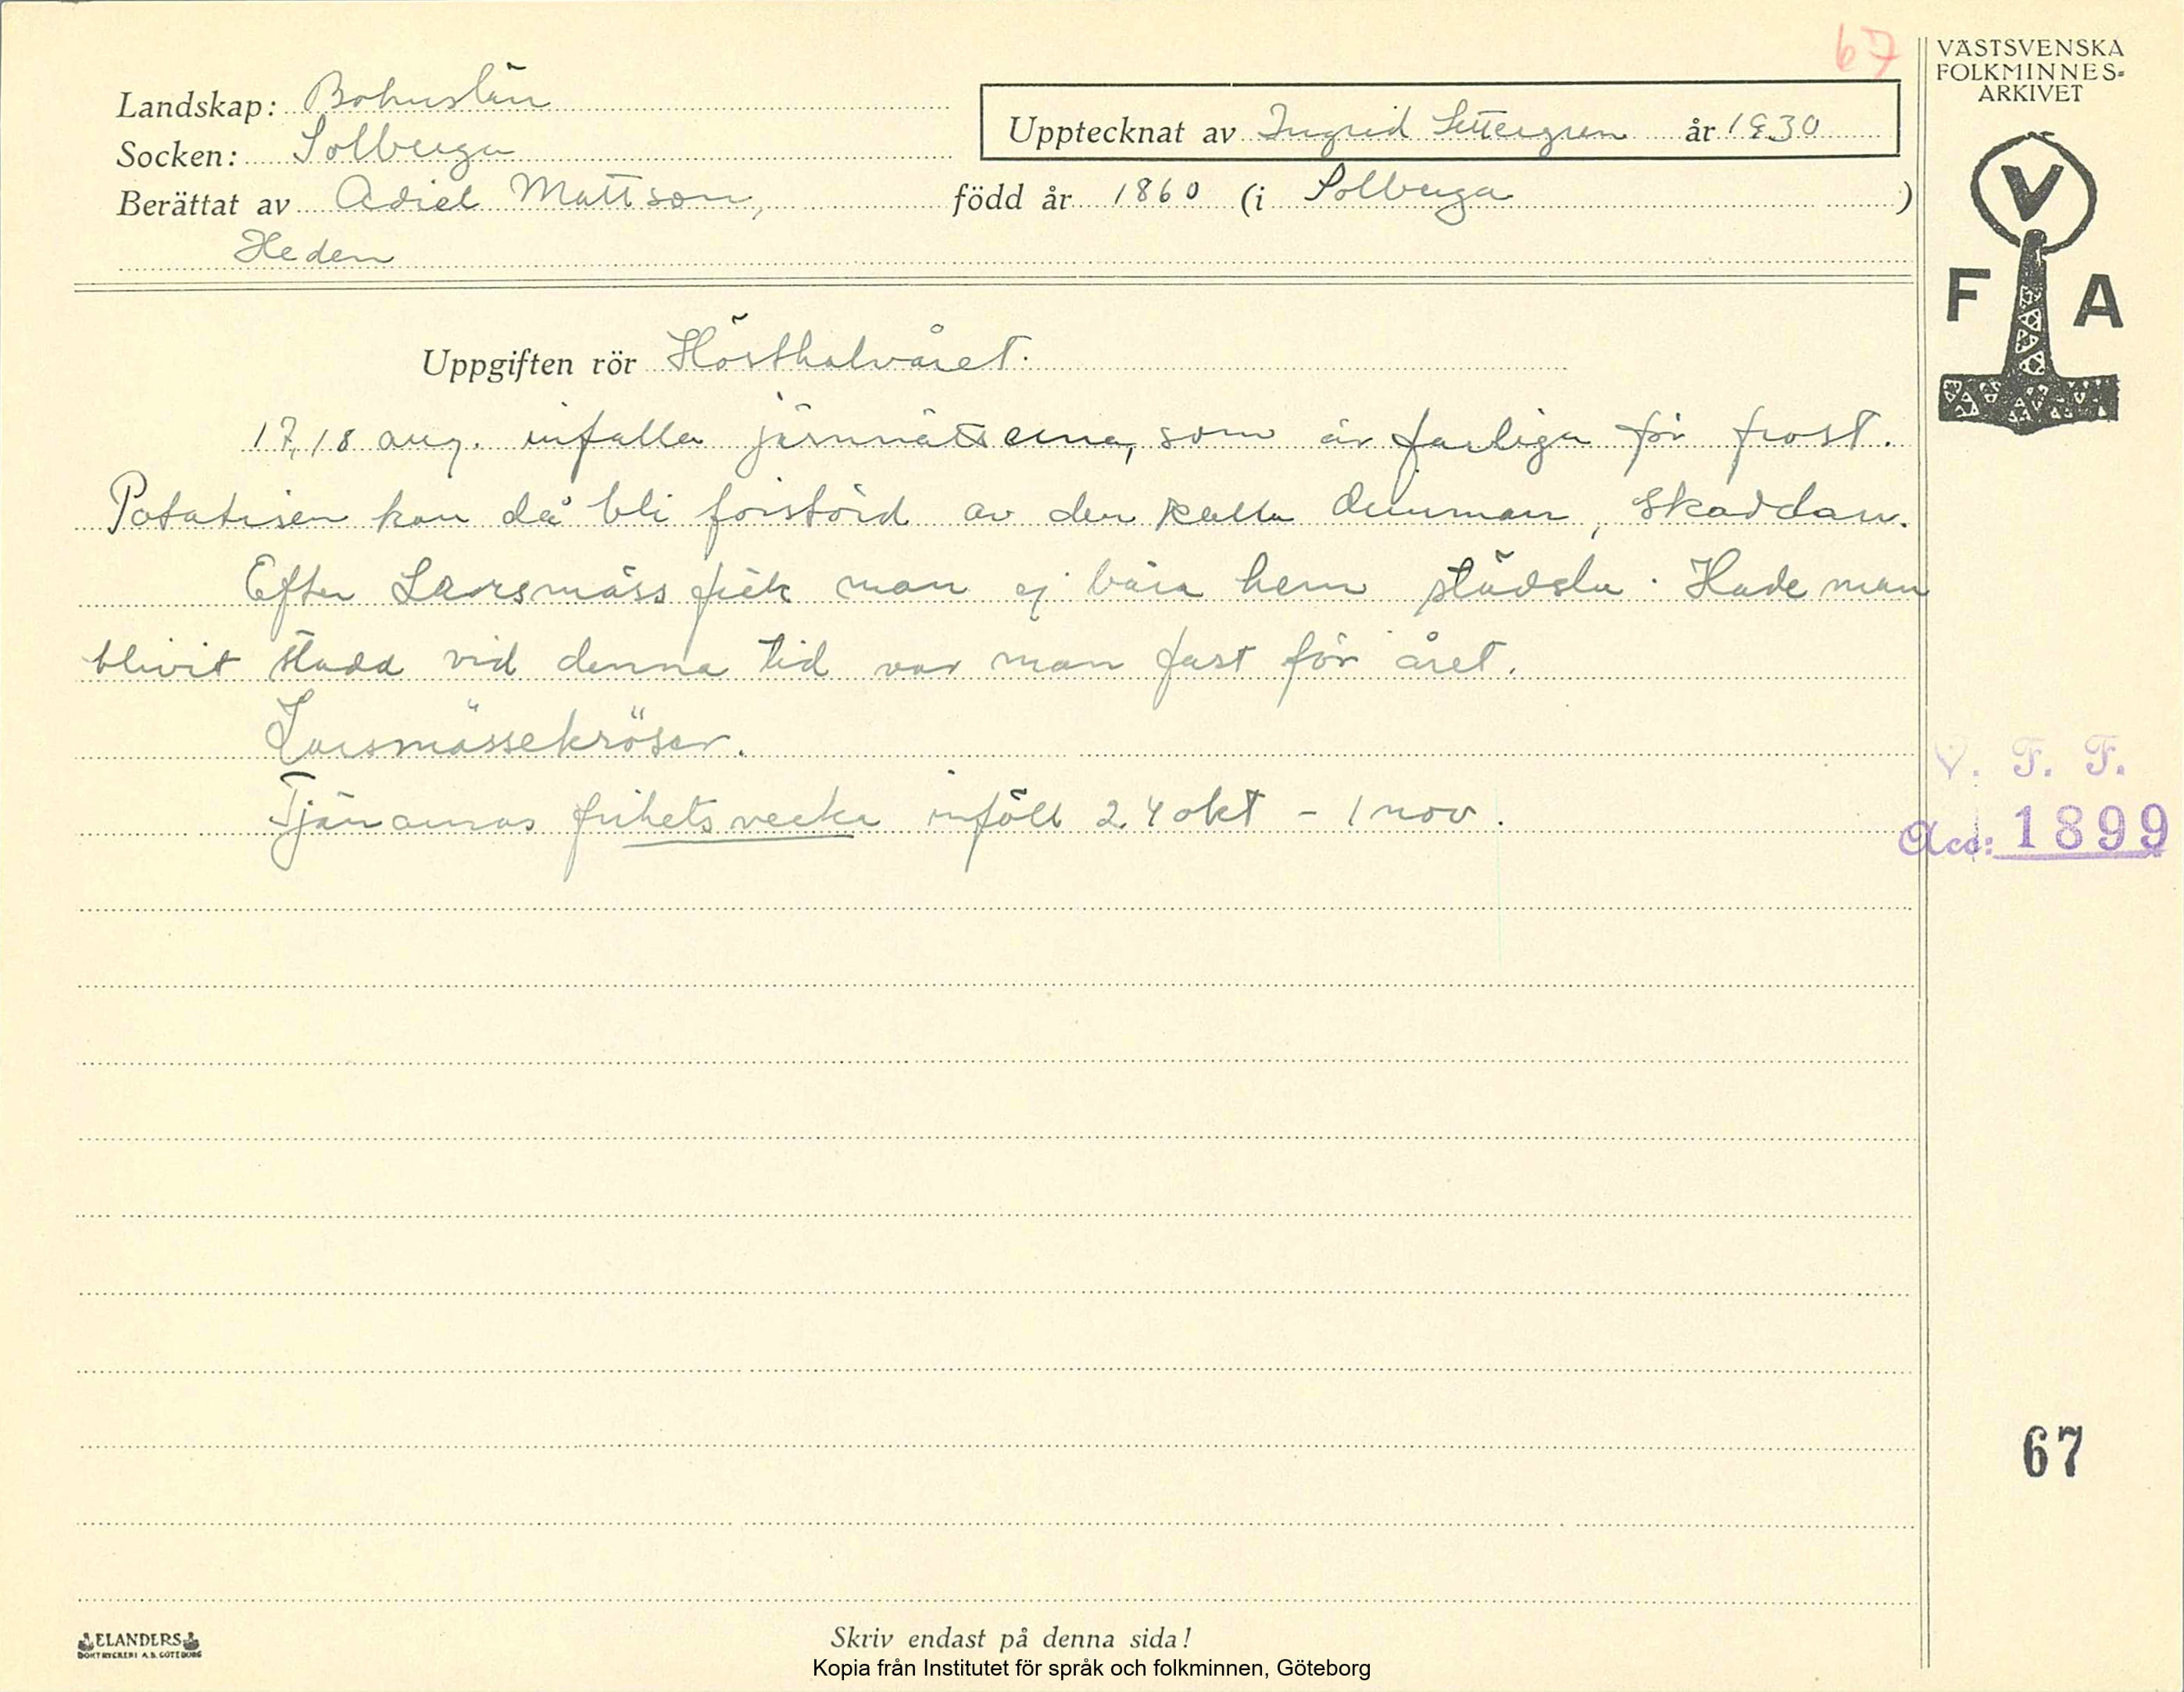 67
VÄSTSVENSKA
FOLKMINNES-
ARKIVET
Landskap: Bohuslän
Upptecknat av Ingrid Settergren år 1930
Socken: Solberga
Berättat av Adiel Mattson, född år 1860 (i Solberga )
Heden
V
F A
Uppgiften rör Hösthalvåret.
17, 18 aug. infalla järnnätterna, som är farliga för frost.
Potatisen kan då bli förstörd av den kalla dimman, skaddan.
Efter Larsmäss fick man ej bära hem städsla. Hade man
blivit städd vid denna tid var man fast för året.
Larsmässekröser.
V. F. F.
Tjänarnas frihetsvecka inföll 24 okt - 1 nov.
Acc: 1899
67
ELANDERS
BOKTRYCKERI A.B. GÖTEBORG
Skriv endast på denna sida!
Kopia från Institutet för språk och folkminnen, Göteborg